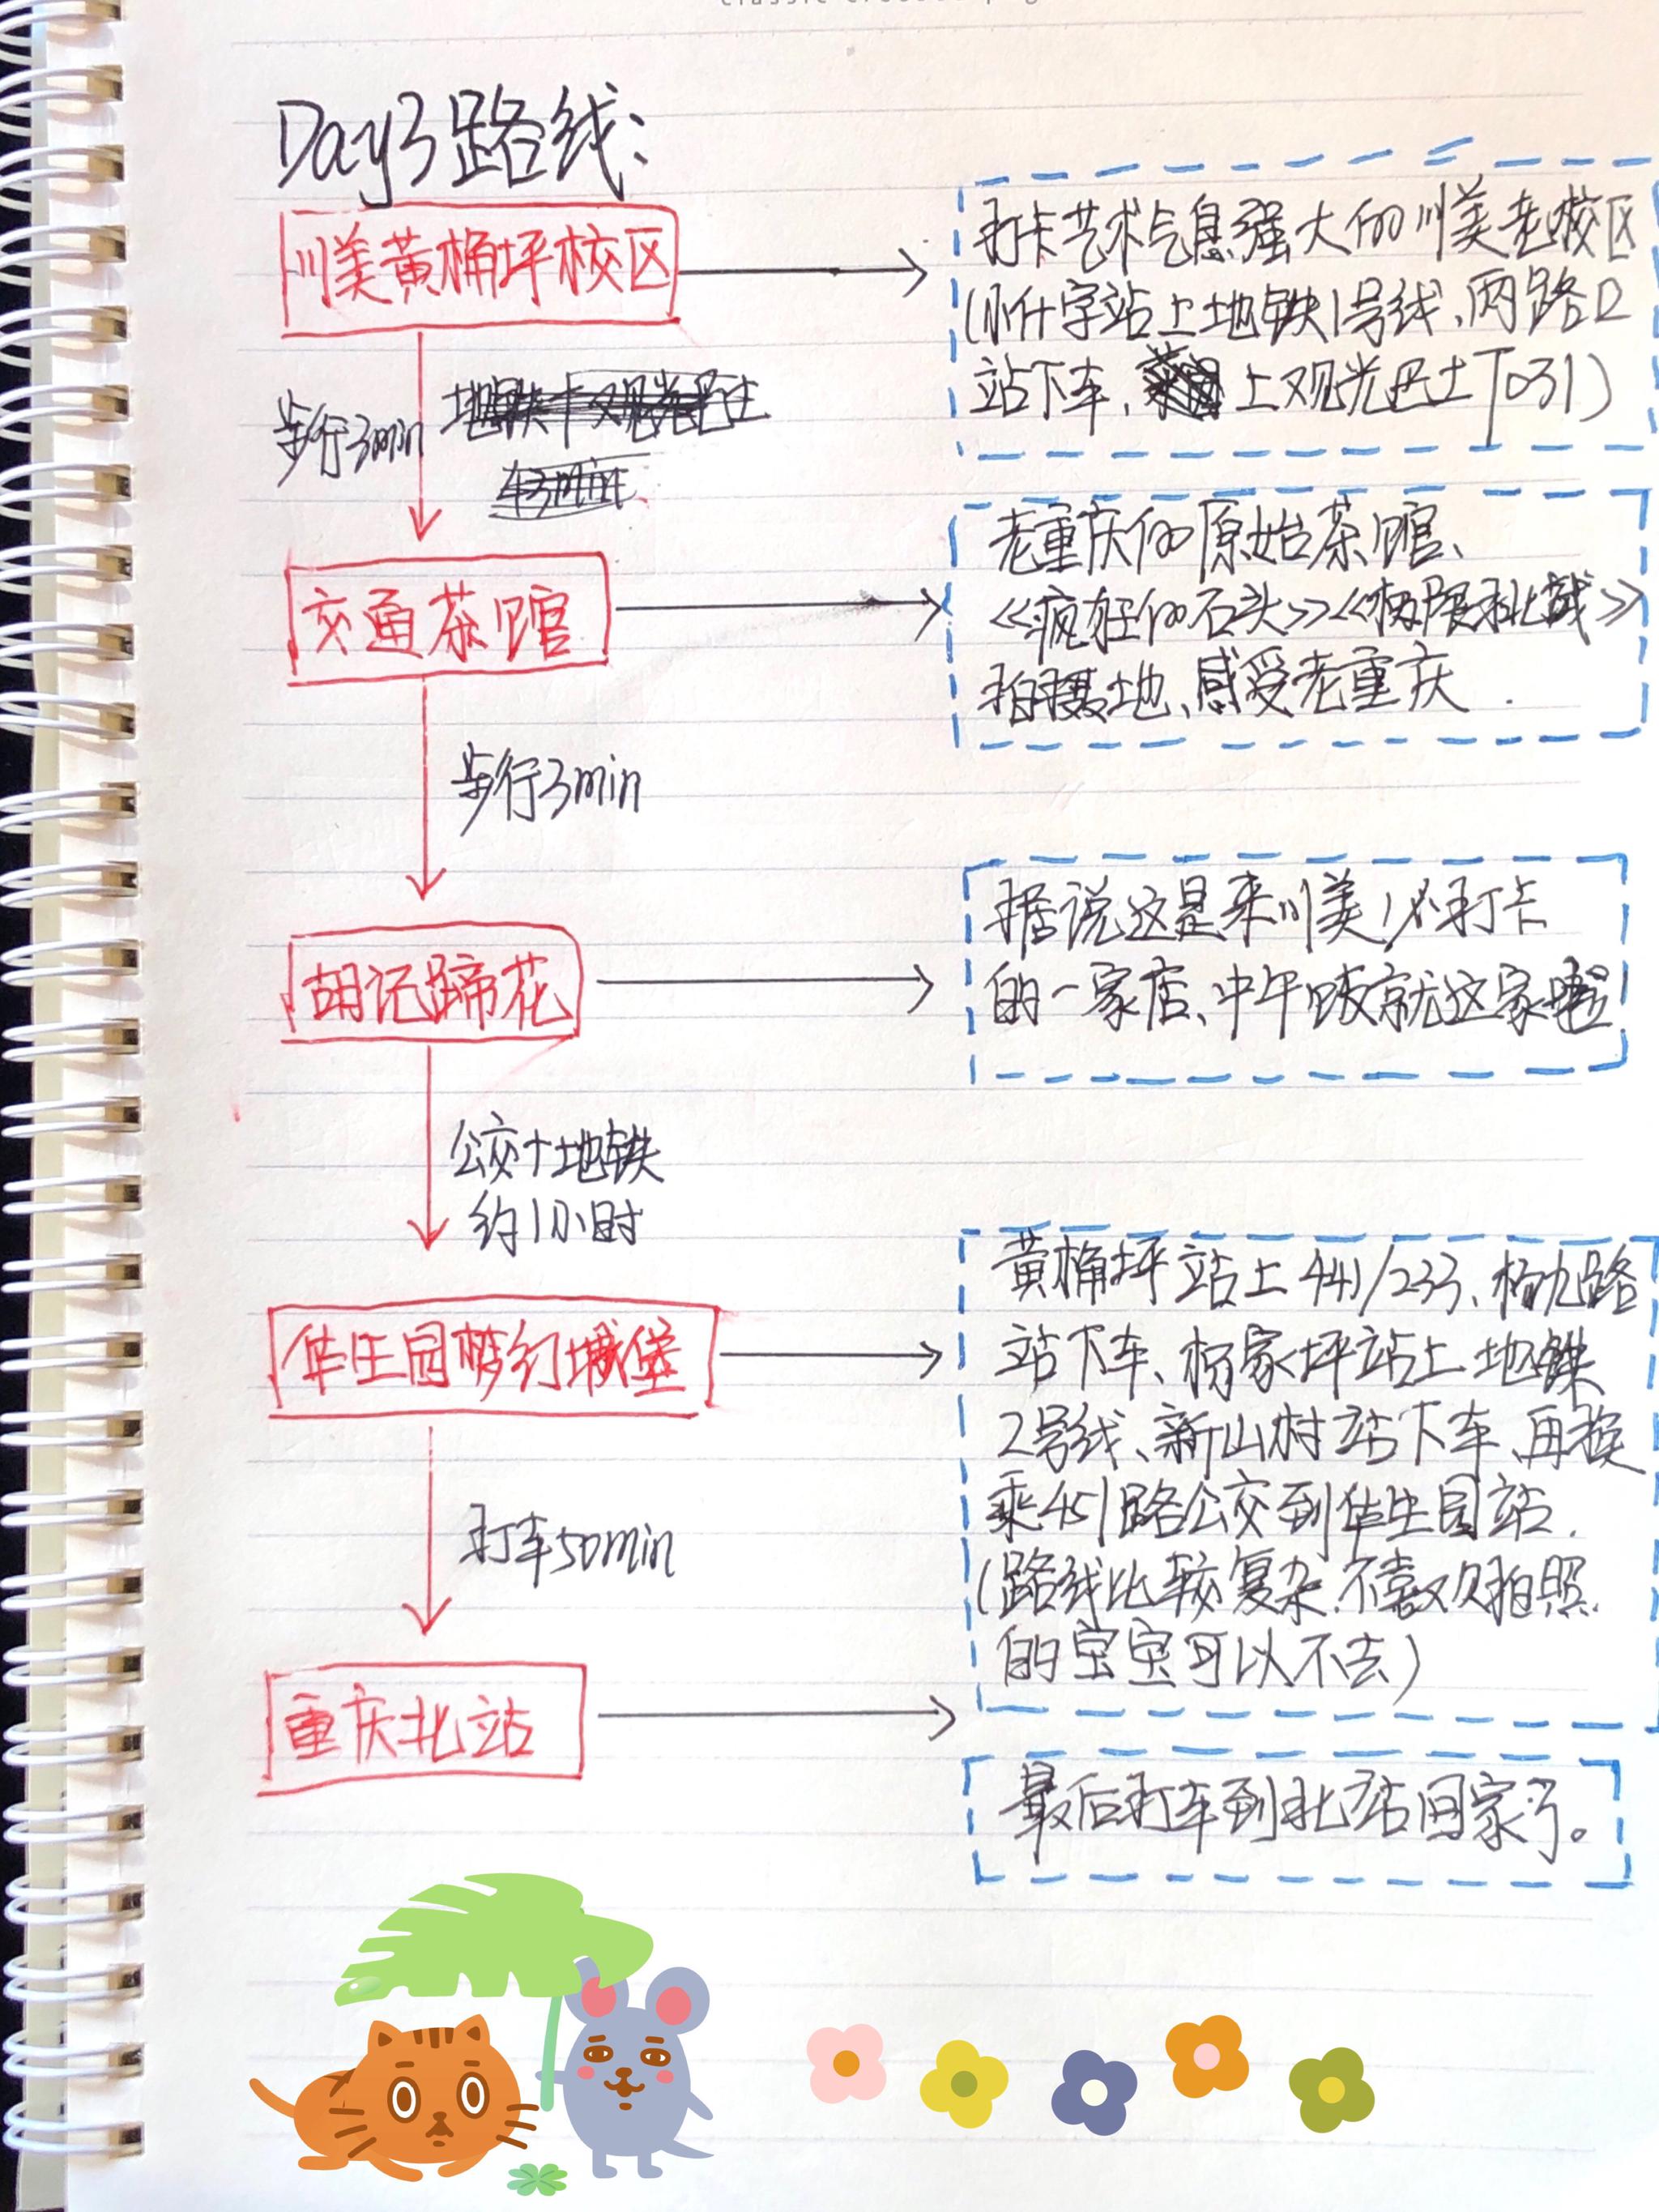 Day3路线:
川美黄桷坪校区
打卡艺术气息强大的川美老校区
(小什字站上地铁1号线、两路口
站下车、上观光巴士T031)
步行3min
地铁+观光巴士
43min
交通茶馆
老重庆的原始茶馆、
《疯狂的石头》《极限挑战》
拍摄地、感受老重庆.
步行3min
胡记蹄花
据说这是来川美必打卡
的一家店、中午饭就这家啦
公交+地铁
约1小时
华生园梦幻城堡
黄桷坪站上441/233、杨九路
站下车、杨家坪站上地铁
2号线、新山村站下车、再换
乘451路公交到华生园站.
(路线比较复杂.不喜欢拍照
的宝宝可以不去)
打车50min
重庆北站
最后打车到北站回家了。